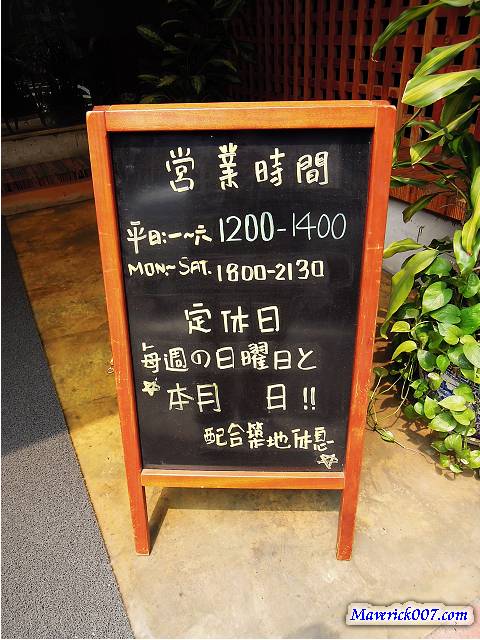 営業時間
平日:一~六 1200-1400
MON~SAT. 1800-2130
定休日
毎週の日曜日と
本月 日!!
配合築地休息
Maverick007.com